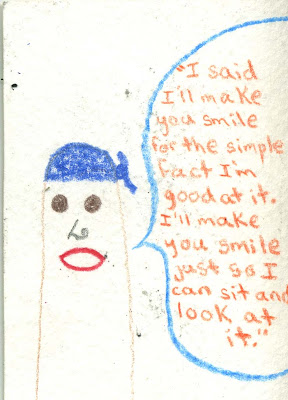 "I said
I'll make
you smile
for the simple
fact I'm
good at it.
I'll make
you smile
just so I
can sit and
look at
it."